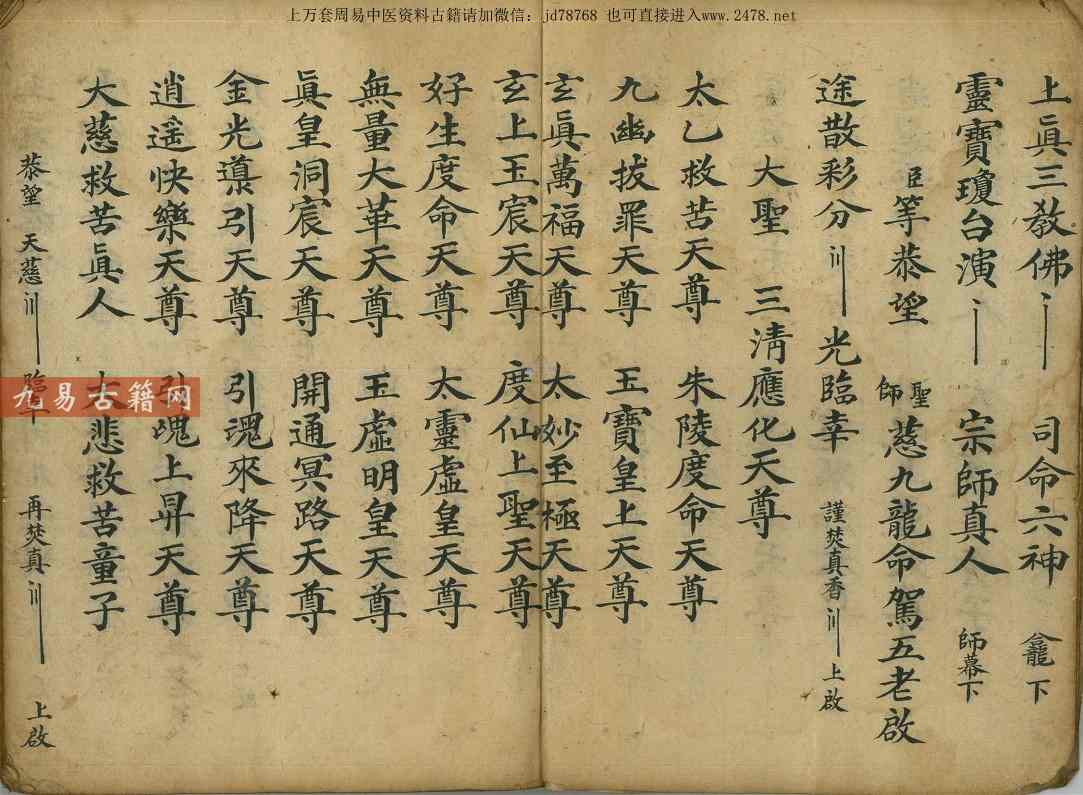 上万套周易中医资料古籍请加微信：jd78768 也可直接进入www.2478.net
上眞三教佛 司命六神 龕下
靈寶瓊台演 宗師真人 師幕下
臣等恭望 聖師慈九龍命駕五老啟
途散彩分 光臨幸 謹焚真香 上啟
大聖 三清應化天尊
太乙救苦天尊 朱陵度命天尊
九幽拔罪天尊 玉寶皇上天尊
玄眞萬福天尊 太妙至極天尊
玄上玉宸天尊 度仙上聖天尊
好生度命天尊 太靈虛皇天尊
無量大華天尊 玉虛明皇天尊
眞皇洞宸天尊 開通冥路天尊
金光導引天尊 引魂來降天尊
逍遥快樂天尊 引魂上昇天尊
大慈救苦眞人 大悲救苦童子
恭望 天慈 再焚真 上啟
九易古籍网